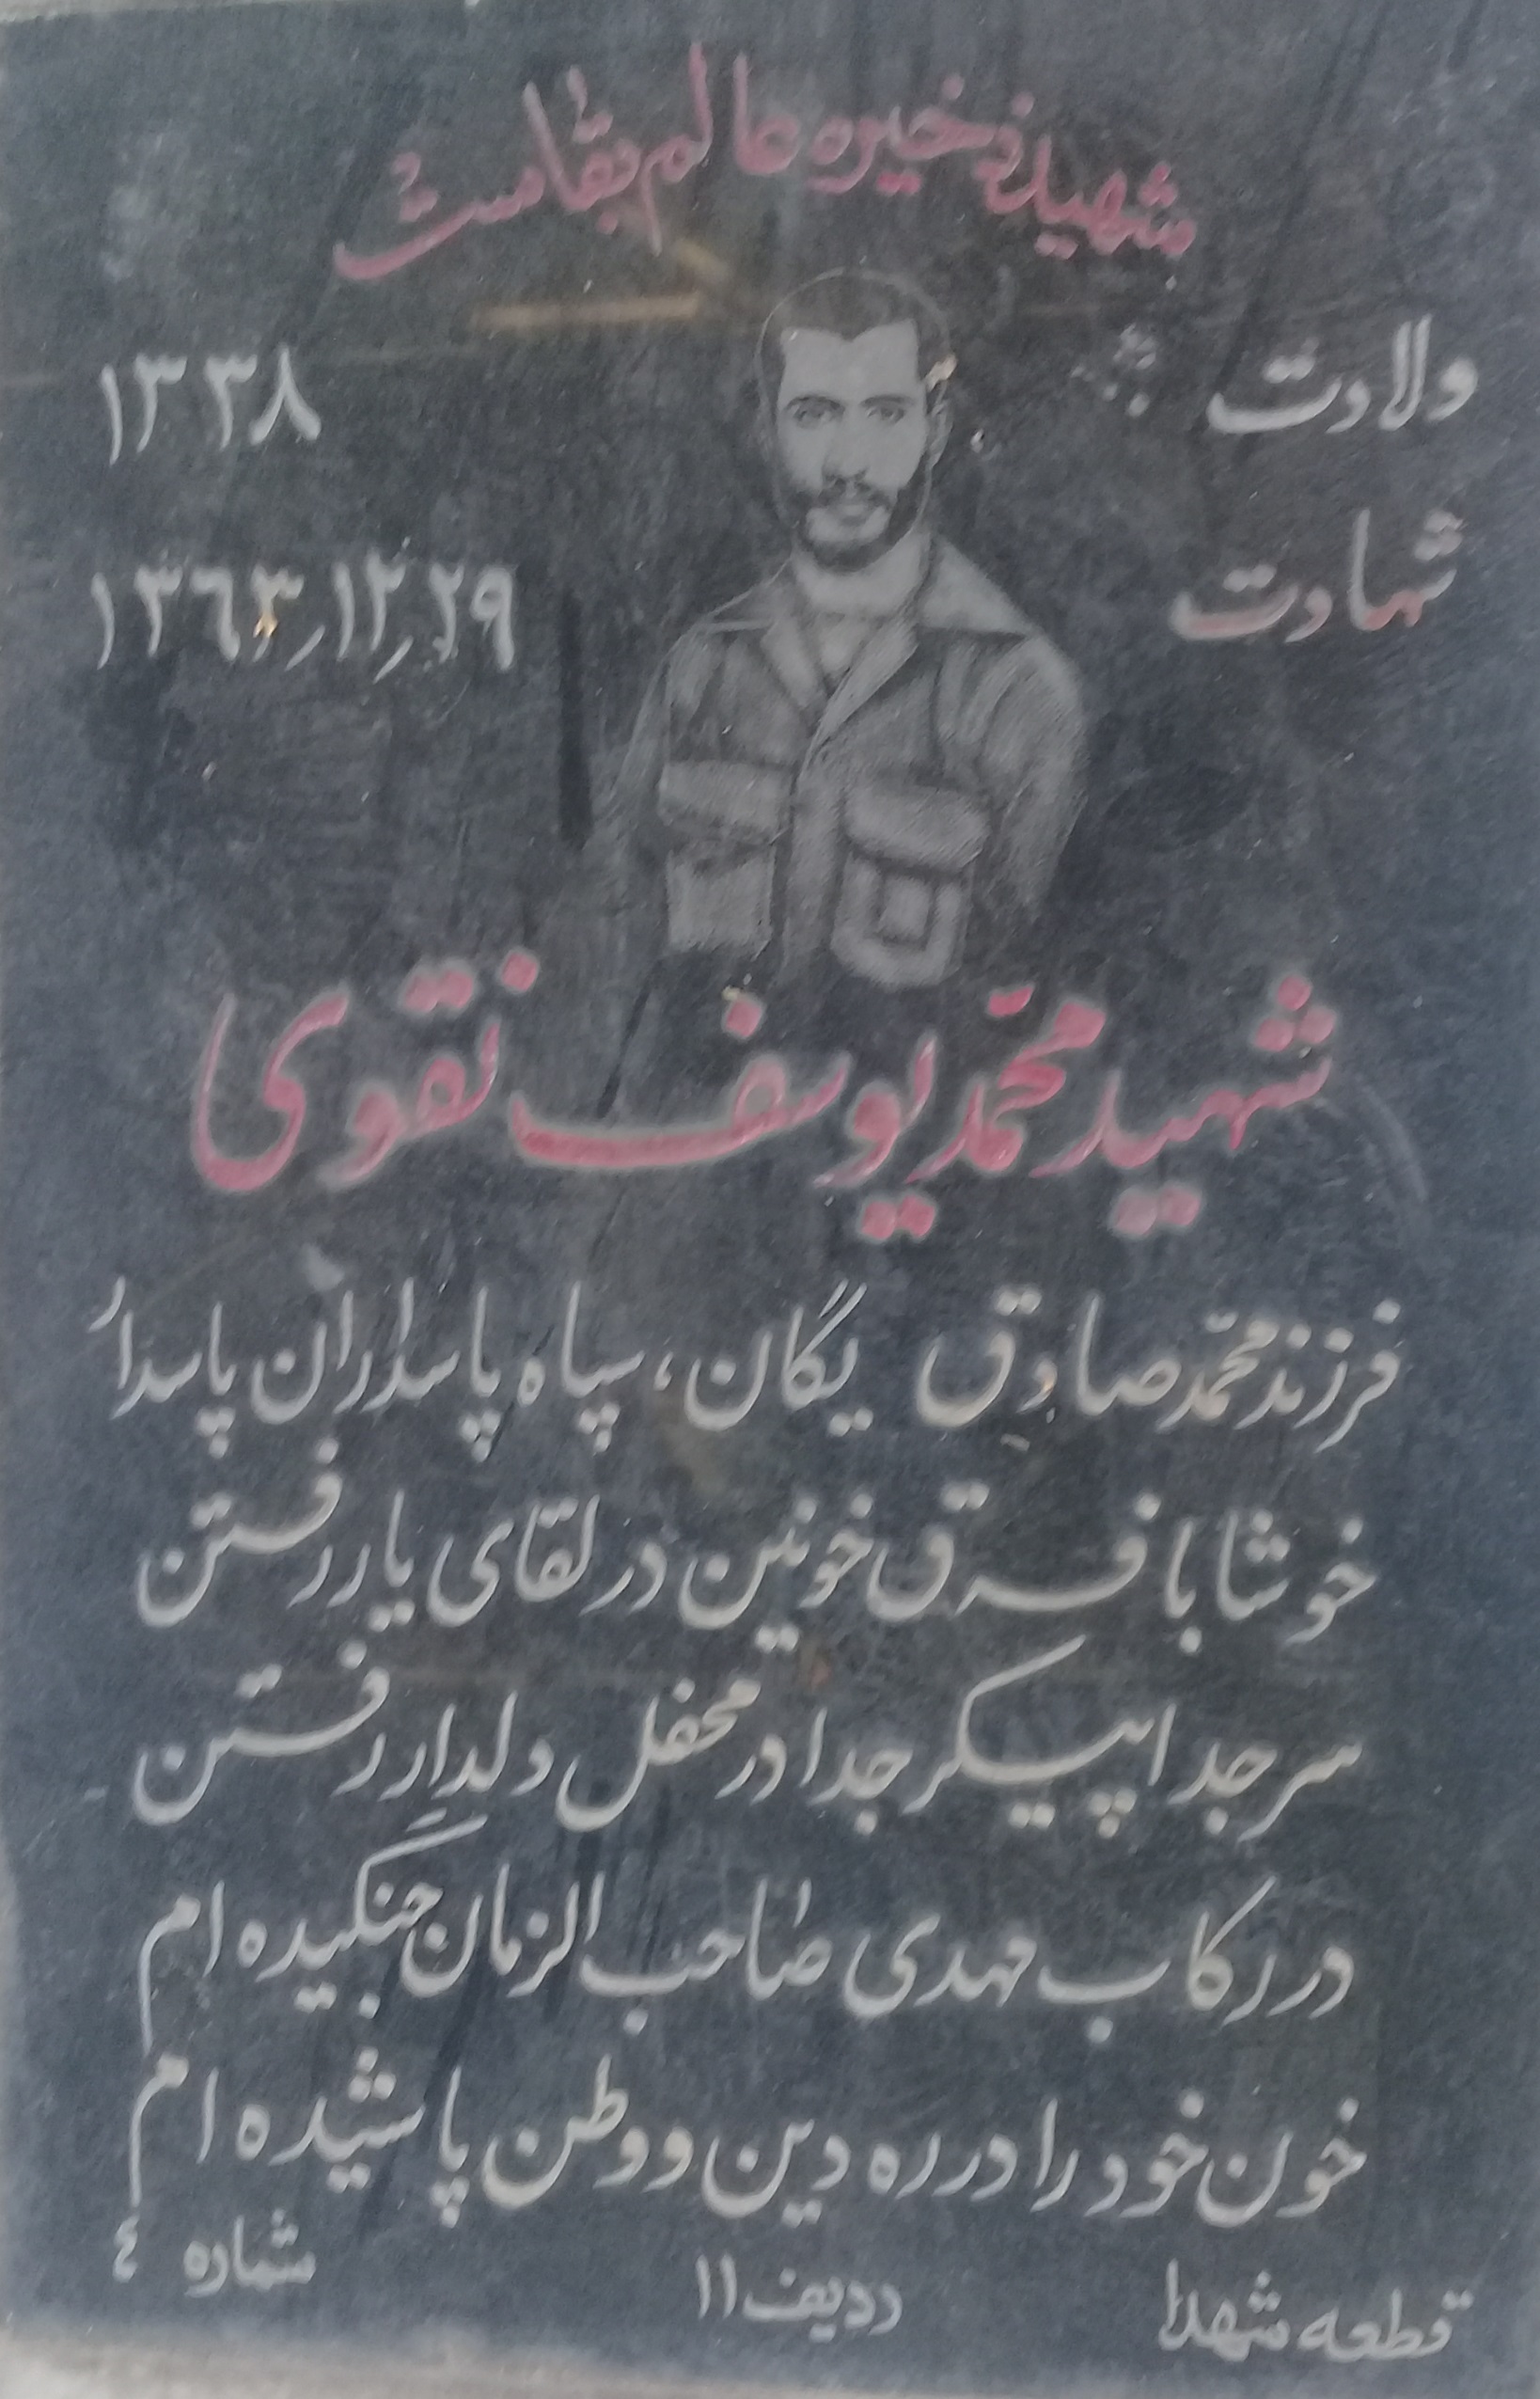 شهید ذخیره عالم بقاست
ولادت ۱۳۳۸
شهادت ۱۳۶۳/۱۲/۲۹
شهید محمّد یوسف نقوی
فرزند محمّد صادق یگان، سپاه پاسداران پاسدار
خوشا با فرق خونین در لقای یار رفتن
سر جدا پیکر جدا در محفل دلدار رفتن
در رکاب مهدی صاحب الزمان جنگیده ام
خون خود را در ره دین و وطن پاشیده ام
قطعه شهدا ردیف ۱۱ شماره ٤